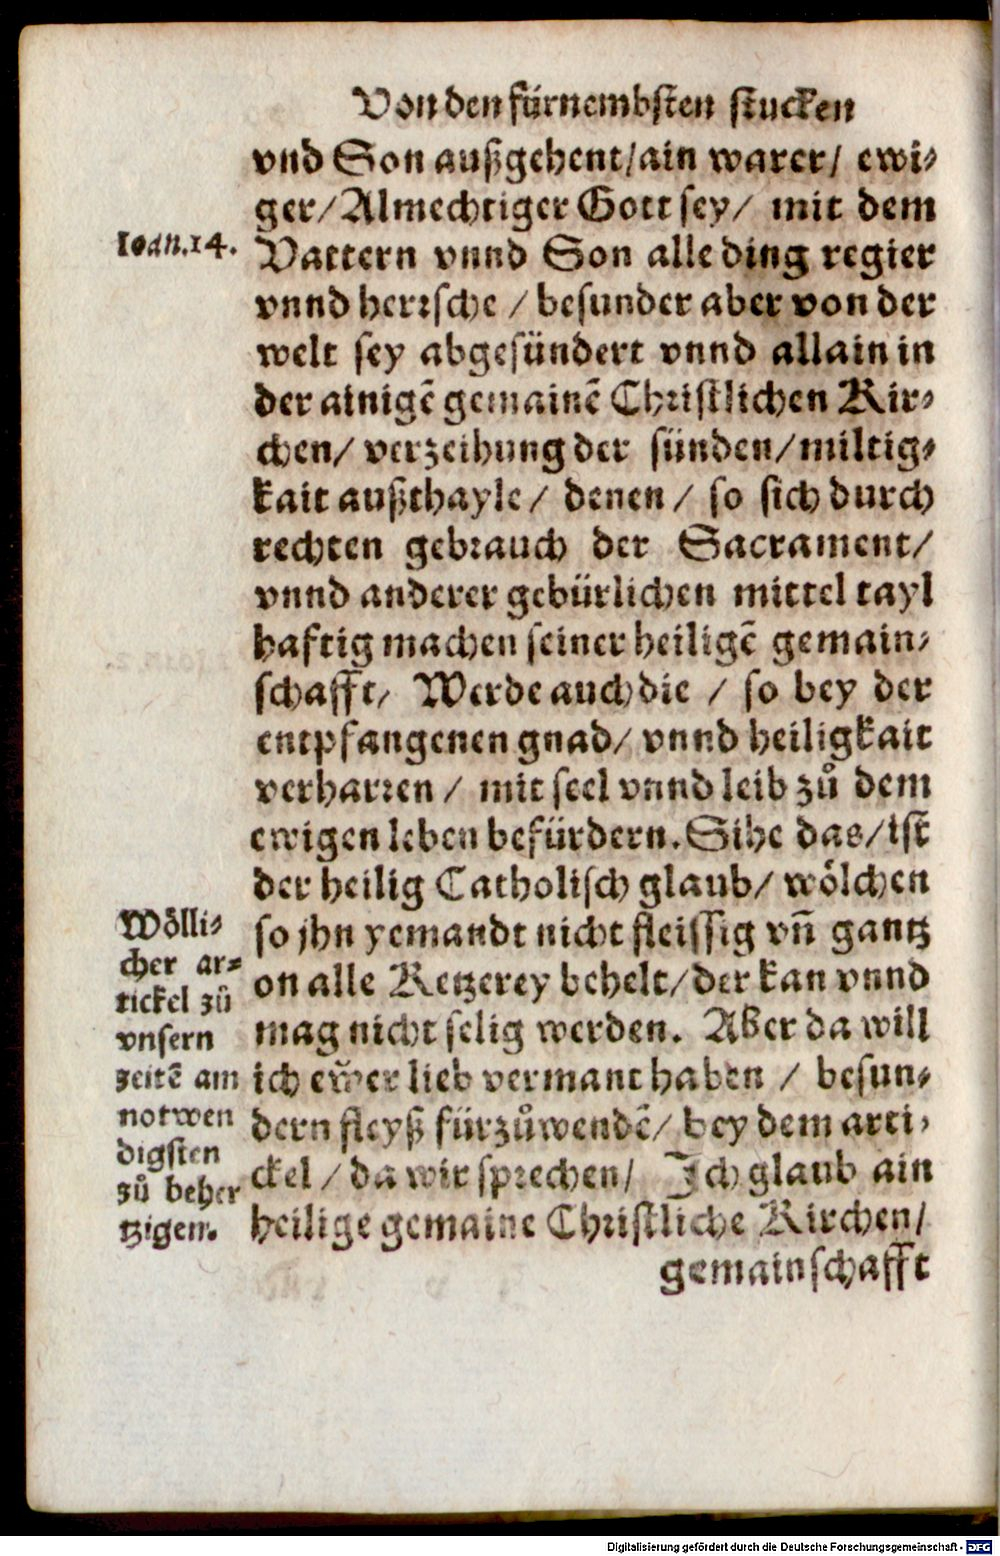 Von den fürnembsten stucken
vnd Son außgehent/ain warer/ ewi⸗
ger/Almechtiger Gott sey/ mit dem
Ioan.14.
Vattern vnnd Son alle ding regier
vnnd herrsche / besunder aber von der
welt sey abgesündert vnnd allain in
der ainigẽ gemainẽ Christlichen Kir⸗
chen/ verzeihung der sünden/miltig⸗
kait außthayle/ denen / so sich durch
rechten gebrauch der Sacrament/
vnnd anderer gebürlichen mittel tayl
haftig machen seiner heiligẽ gemain⸗
schafft/ Werde auch die / so bey der
entpfangenen gnad/ vnnd heiligkait
verharren / mit seel vnnd leib zů dem
ewigen leben befürdern. Sihe das/ist
der heilig Catholisch glaub/ wölchen
so jhn yemandt nicht fleissig vñ gantz
on alle Ketzerey behelt/der kan vnnd
mag nicht selig werden. Aber da will
ich ewer lieb vermant haben / besun⸗
dern fleyß fürzůwendẽ/ bey dem arti⸗
ckel / da wir sprechen/ Ich glaub ain
heilige gemaine Christliche Kirchen/
gemainschafft
Wölli⸗
cher ar⸗
tickel zů
vnsern
zeitẽ am
notwen
digsten
zů beher
tzigen.
Digitalisierung gefördert durch die Deutsche Forschungsgemeinschaft - DFG